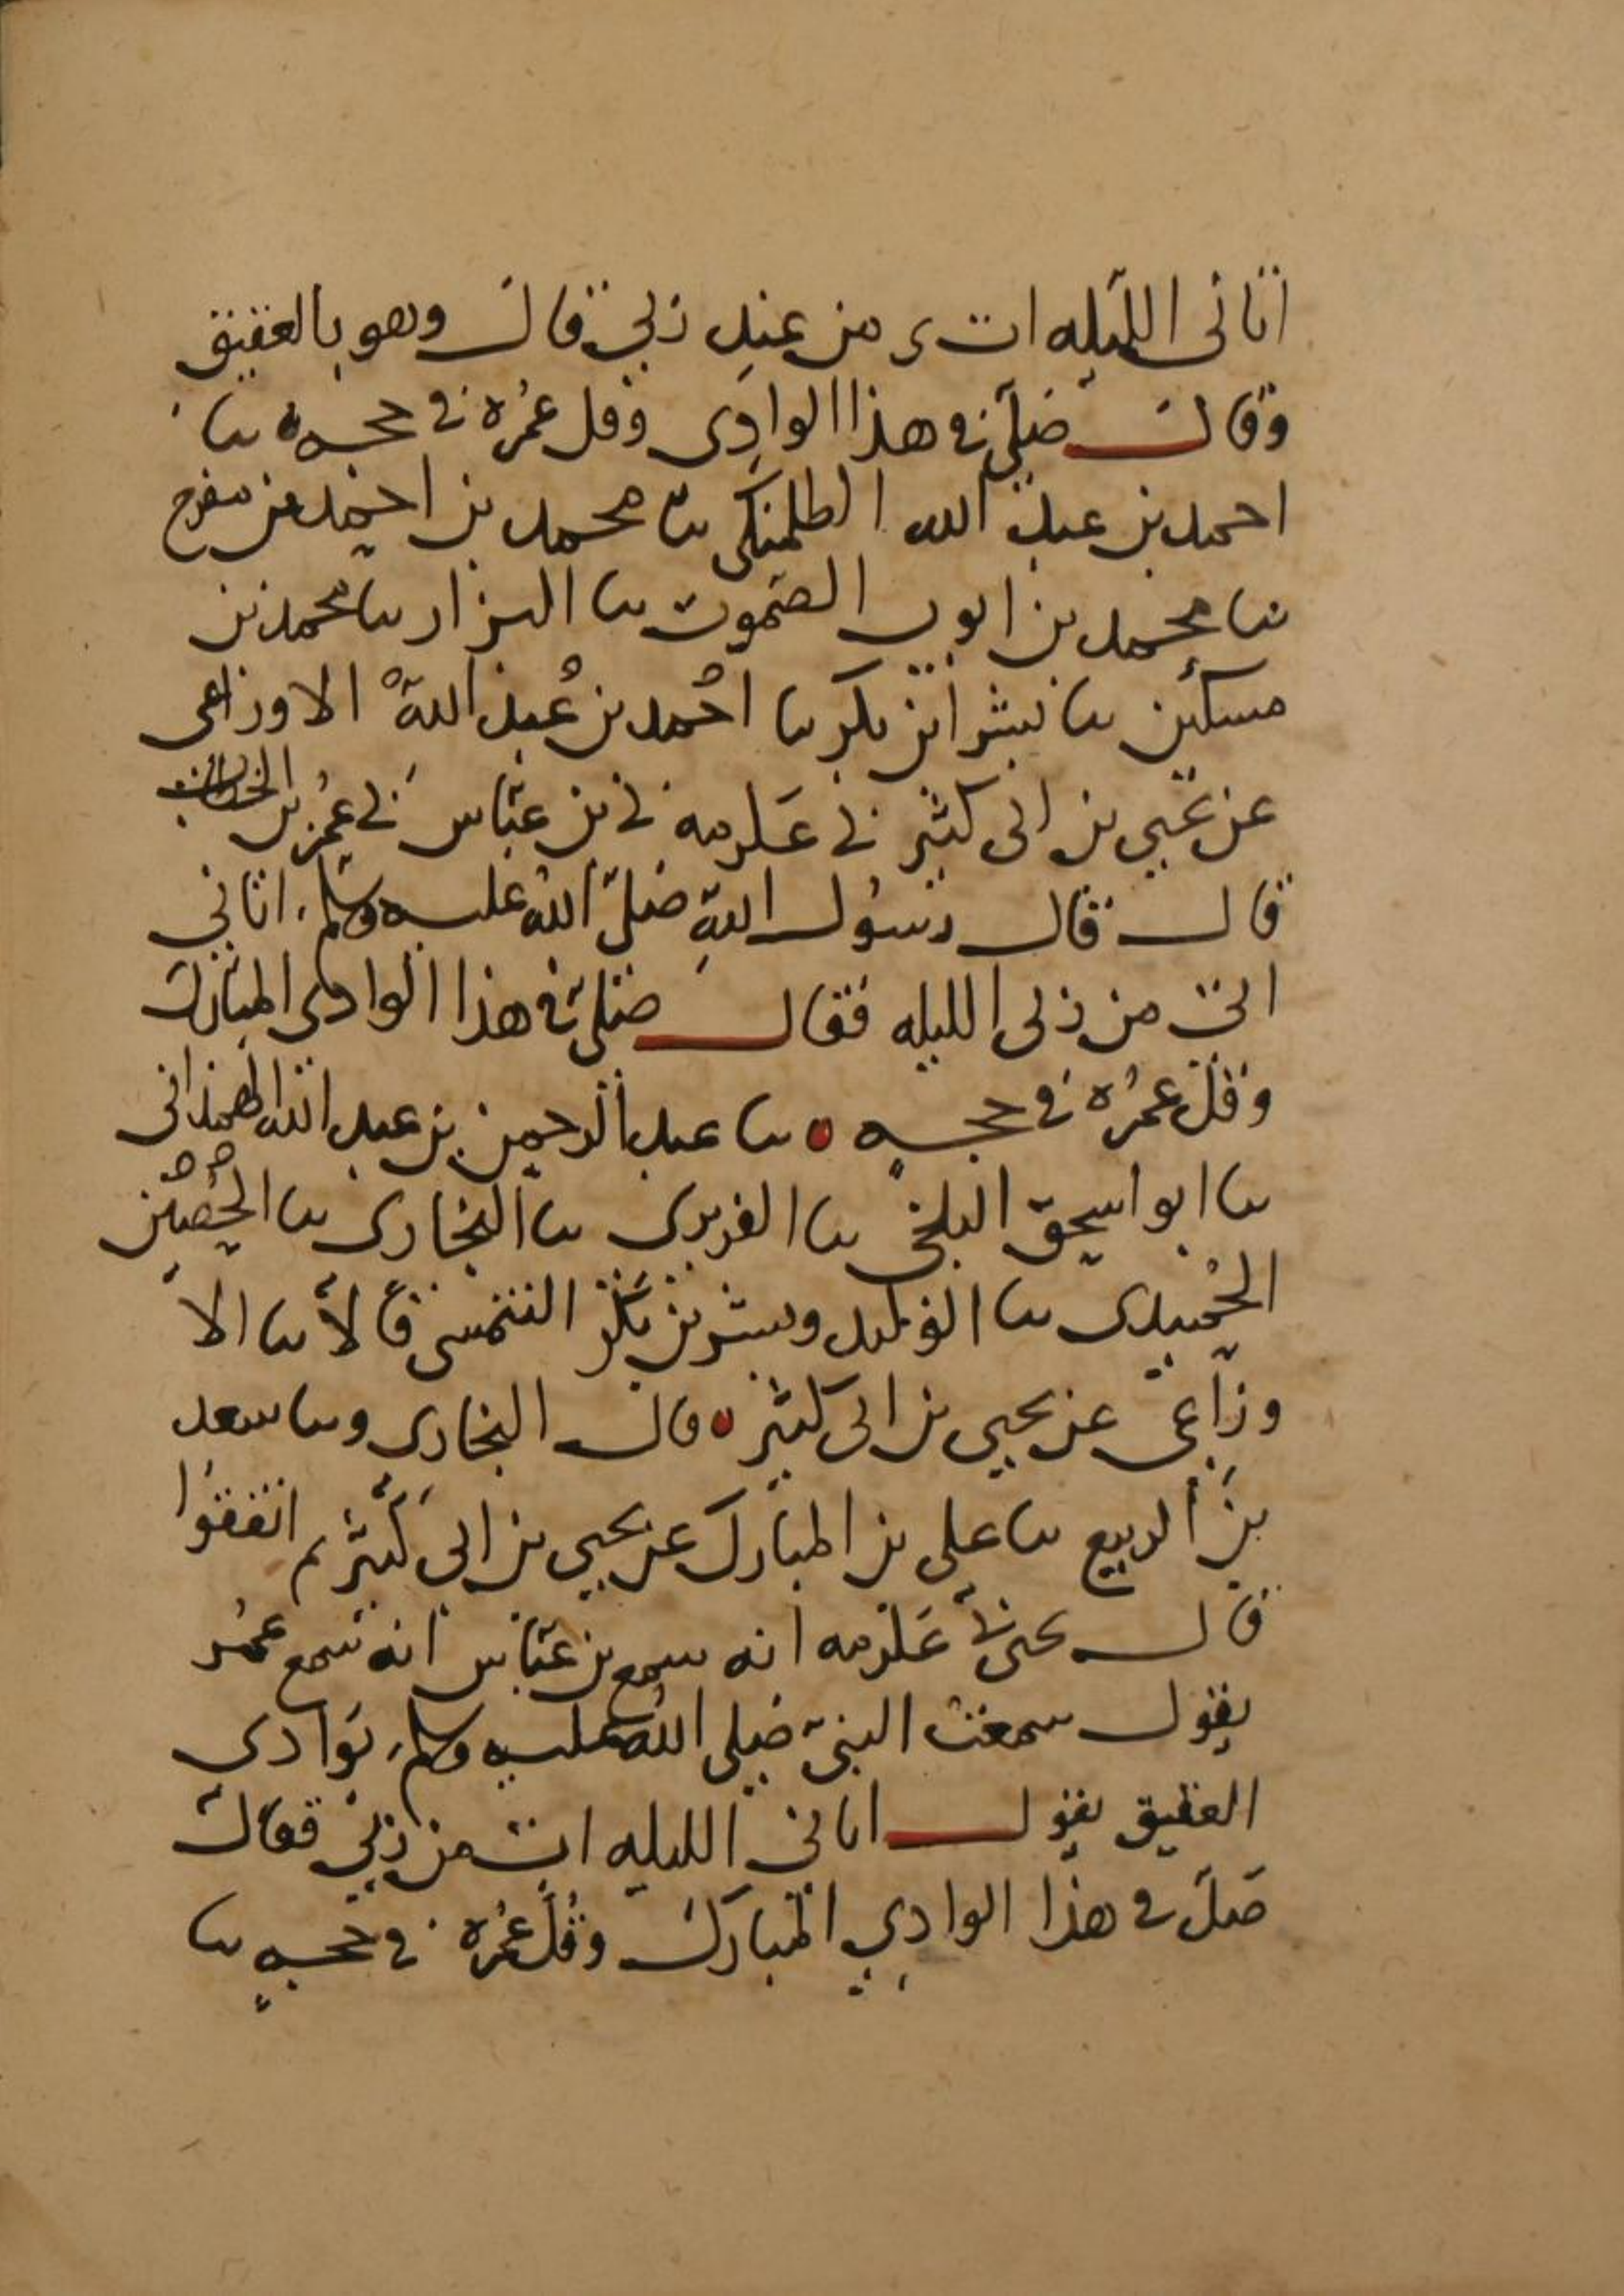 اتانى الليله ات من عند ربي قال وهو بالعقيق
وقال صل في هذا الوادى وقل عمره في حجه ثنا
احمد بن عبد الله الطلمنكى ثنا محمد بن احمد بن مفرج
ثنا محمد بن ايوب الصموت ثنا البزار ثنا محمد بن
مسكين ثنا بشر بن بكر ثنا احمد بن عبد الله الاوزاعى
عن يحيى بن ابى كثير ني عكرمه ني بن عباس ني عمر بن الخطاب
قال قال رسول الله صلى الله عليه وسلم اتاني
ات من ربى الليله فقال صل في هذا الوادى المبارك
وقل عمره في حجه ثنا عبد الرحمن بن عبد الله الهمدانى
ثنا ابو اسحق البلخى ثنا الفربرى ثنا البخارى ثنا
الحميدى ثنا الوليد وبشر بن بكر التنيسى قالا ثنا الا
وزاعى عن يحيى بن ابى كثير قال البخارى وثنا سعد
بن الربيع ثنا على بن المبارك عن يحيى بن ابى كثير ثم اتفقوا
قال يحيى ني عكرمه انه سمع بن عباس انه سمع عمر
يقول سمعت النبي صلى الله عليه وسلم بوادى
العقيق يقول اتاني الليله ات من ربي فقال
صل في هذا الوادي المبارك وقل عمره في حجه ثنا